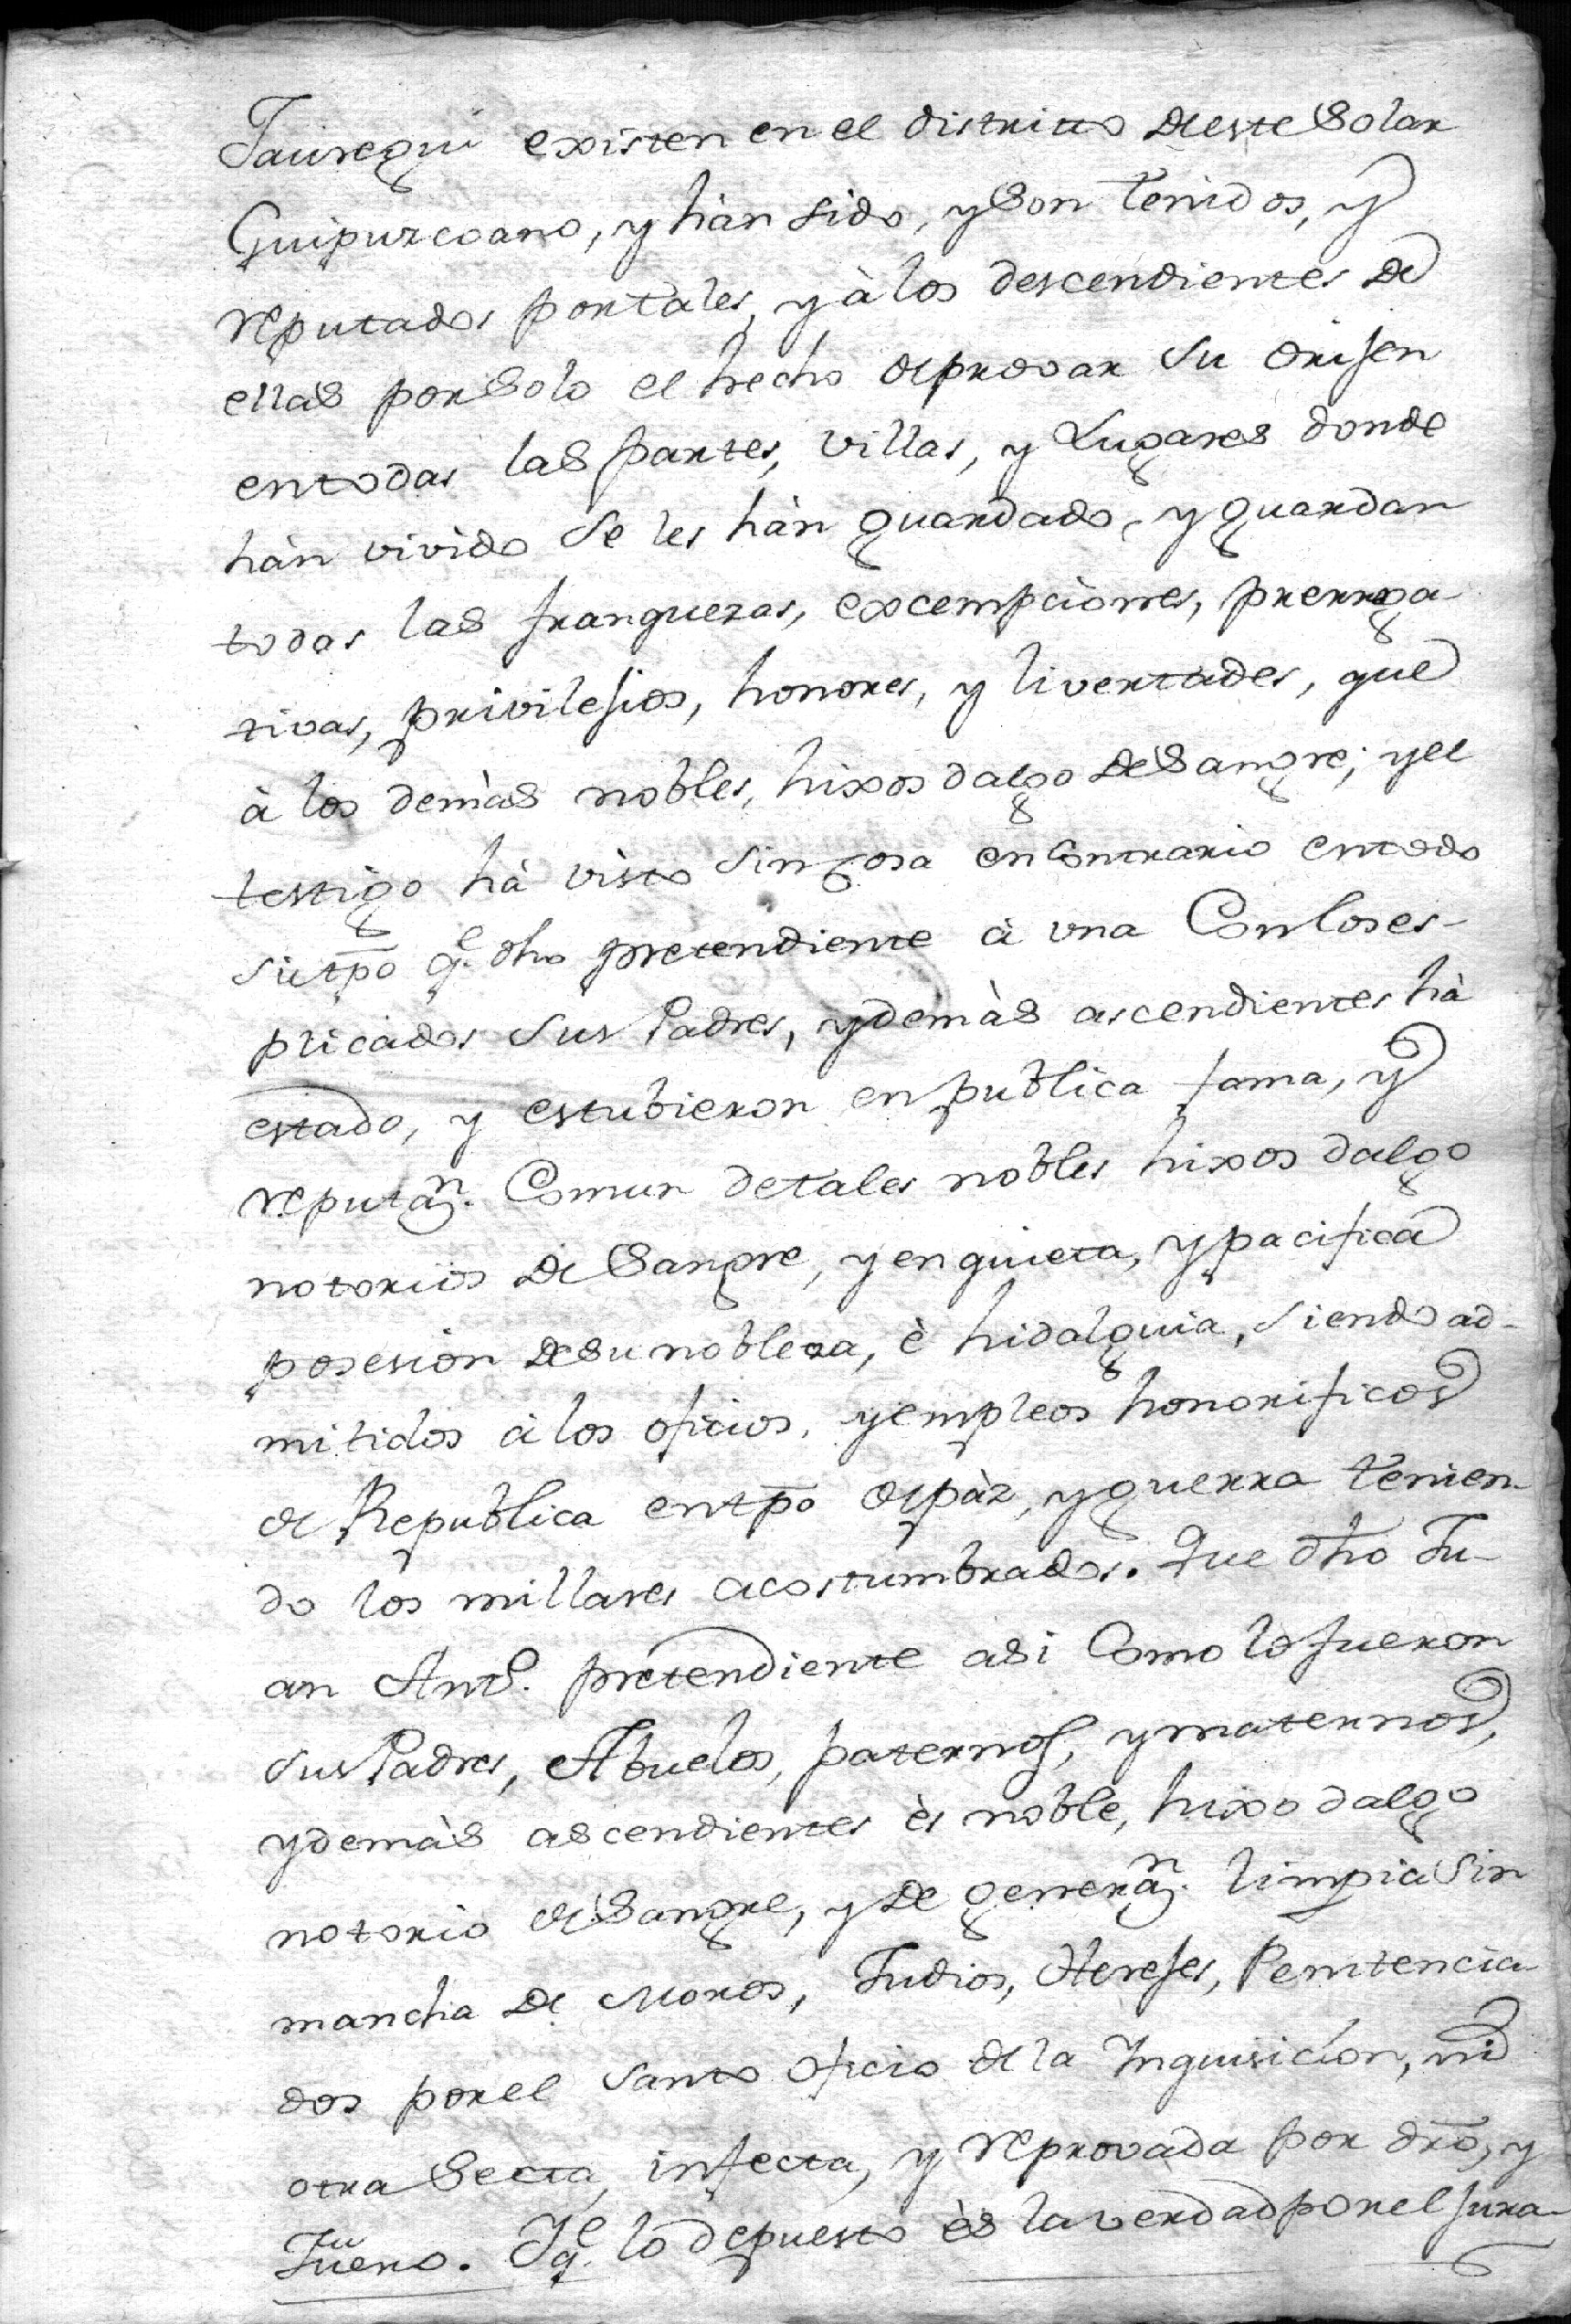 Jauregui existen en el distrito de este Solar
Guipuzcoano, y hàn sido, y Son tenidos, y
reputados por tales, y à los descendientes de
ellas por Solo el hecho de provar su orijen
en todas las partes, villas, y Lugares donde
hàn vivido se les hàn guardado, y guardan
todas las franquezas, excempciones, prerroga-
tivas, privilejios, honores, y livertades, que
à los demàs nobles, hixos dalgo de Sangre; y el
testigo hà visto sin cosa en Contrario en todo
su tpo q.e dho pretendiente à una Con los es-
plicados sus Padres, y demàs ascendientes hà
estado, y estubieron en publica fama, y
reputaz.n Comun de tales nobles hixos dalgo
notorios de Sangre, y en quieta, y pacifica
posesion de su nobleza, è hidalguia, siendo ad-
mitidos à los oficios, y empleos honorificos
de Republica en tpo de pàz, y guerra tenien-
do los millares acostumbrados. Que dho Ju-
an Ant.o pretendiente asi Como lo fueron
sus Padres, Abuelos, paternos, y maternos,
y demàs ascendientes ès noble, hixo dalgo
notorio de Sangre, y de generaz.n limpia Sin
mancha de Moros, Judios, Herejes, Penitencia-
dos por el Santo oficio de la Inquisicion, ni
otra Secta, infecta, y reprovada por dro, y
Fuero. Y q.e lo depuesto ès la verdad por el jura-